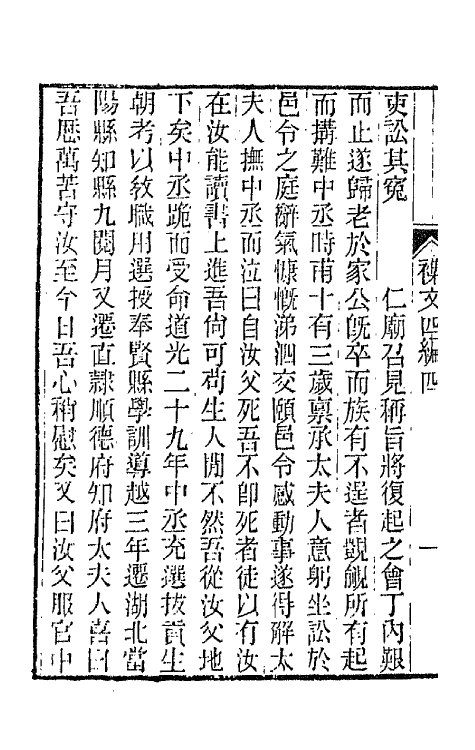 襍文四編四
一
吏訟其寃　　仁廟召見稱旨將復起之會丁內艱
而止遂歸老於家公旣卒而族有不逞者覬覦所有起
而搆難中丞時甫十有三歲稟承太夫人意躬坐訟於
邑令之庭辭氣慷慨涕泗交頤邑令感動事遂得解太
夫人撫中丞而泣曰自汝父死吾不卽死者徒以有汝
在汝能讀書上進吾尙可苟生人閒不然吾從汝父地
下矣中丞跪而受命道光二十九年中丞充選拔貢生
朝考以敎職用選授奉賢縣學訓導越三年遷湖北當
陽縣知縣九閱月又遷直隸順德府知府太夫人喜曰
吾歷萬苦守汝至今日吾心稍慰矣又曰汝父服官中